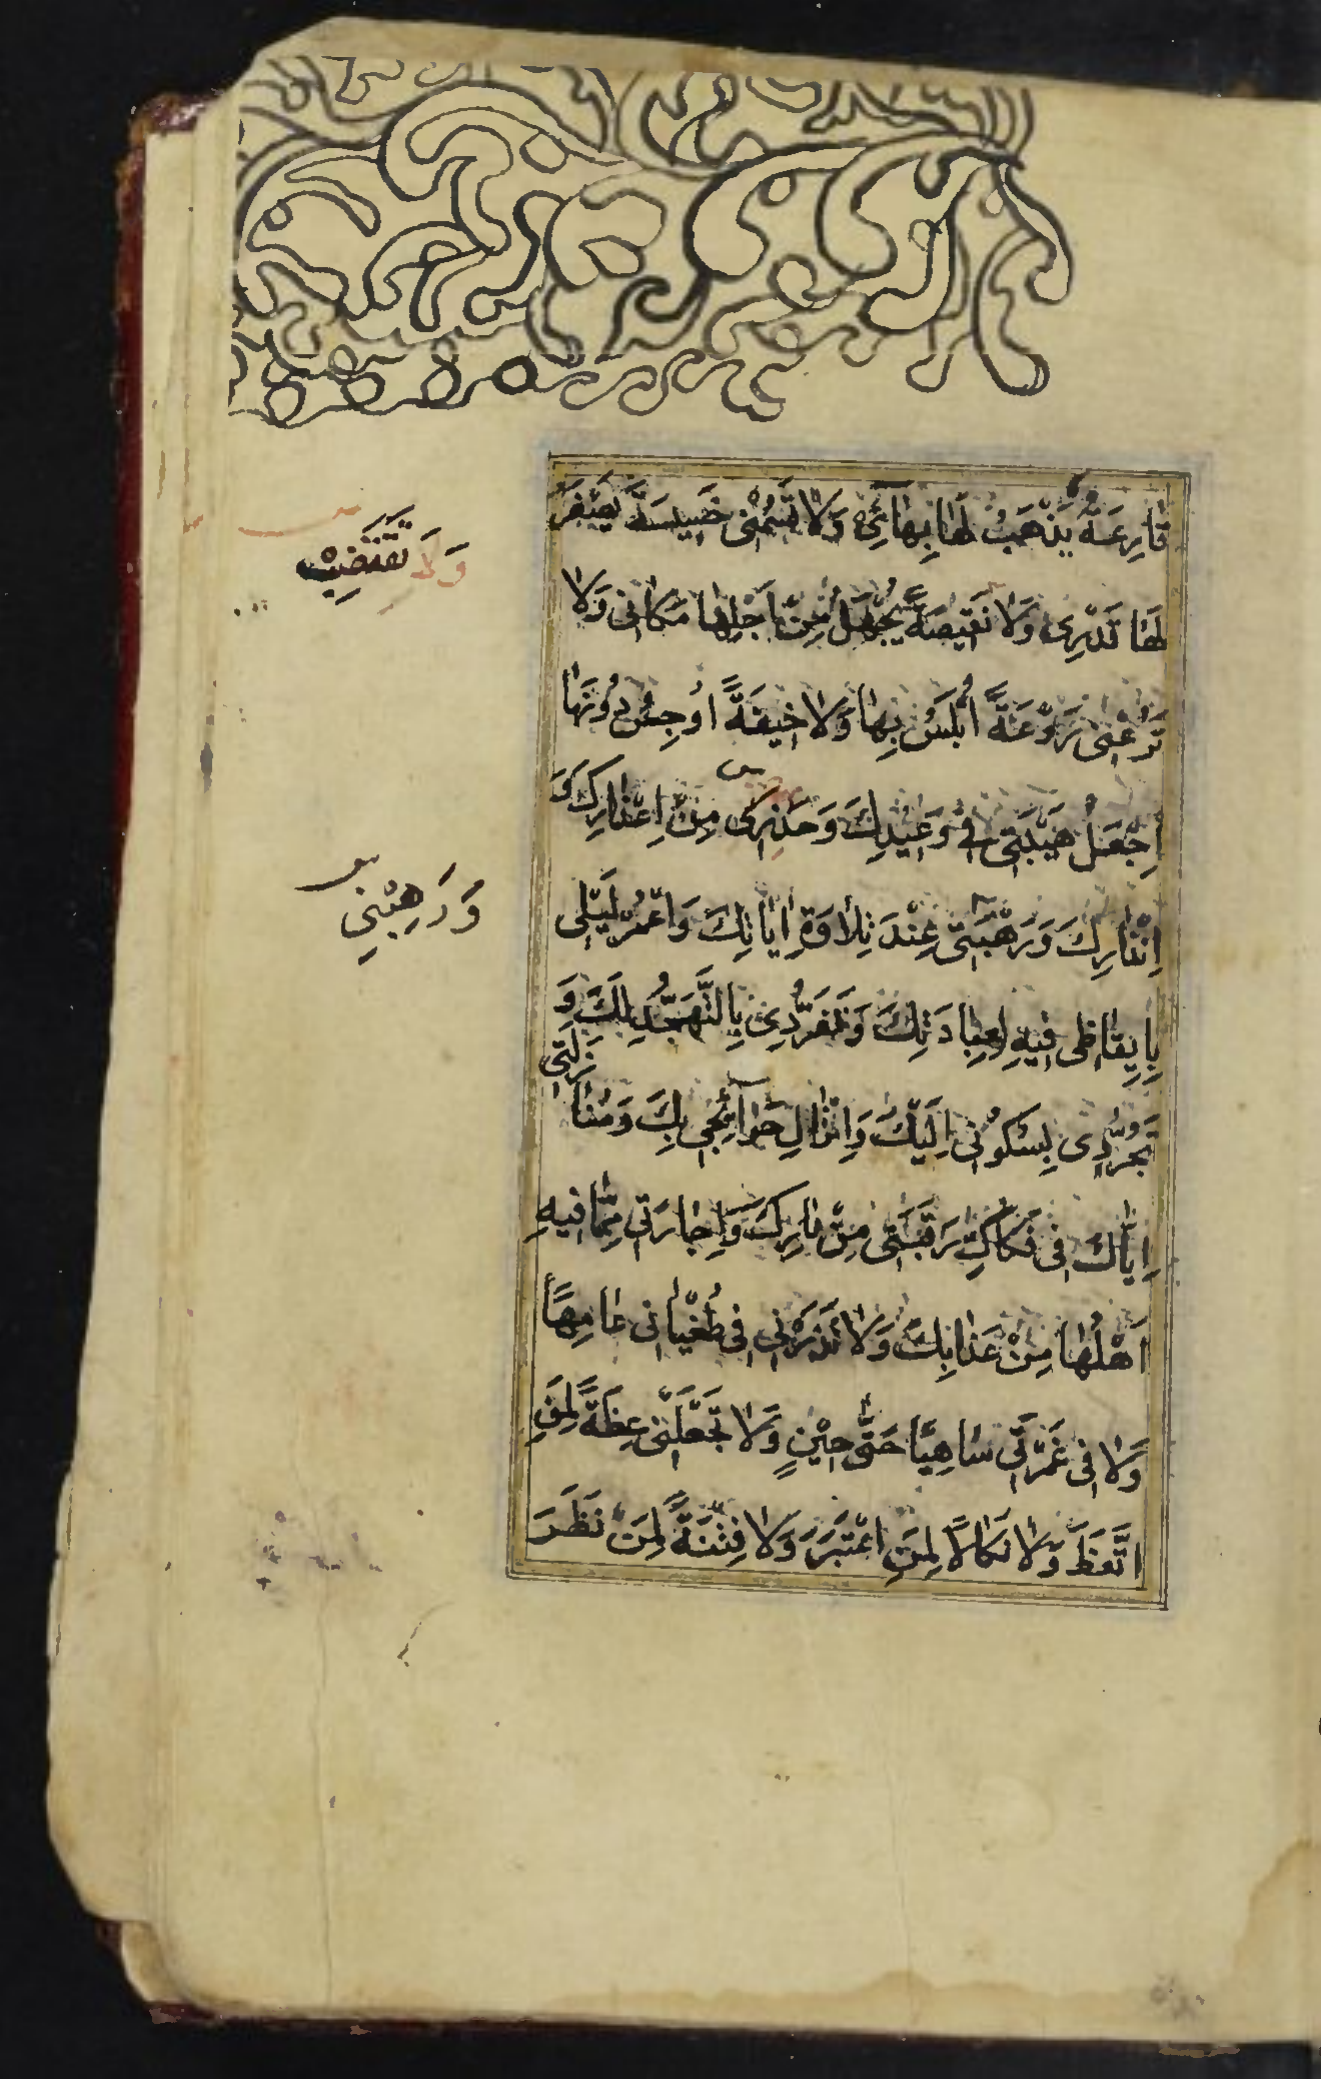 قٰارِعَةً يَذْهَبُ لَهٰا بِهٰآئِي وَلاٰ تَسُمْنِي خَسِيسَةً يَصْغُرُ
لَهٰا قَدْرِي وَلاٰ نَقِيصَةً يُجْهَلُ مِنْ اَجْلِهٰا مَكٰانِي وَلاٰ
تَرُعْنِي رَوْعَةً اُبْلَسُ بِهٰا وَلاٰ خِيفَةً اُوجِسُ دُونَهٰا
اِجْعَلْ هَيْبَتِي فِي وَعِيدِكَ وَحَذَرِي مِنْ اِعْذٰارِكَ وَ
اِنْذٰارِكَ وَرَهْبَتِي عِنْدَ تِلاٰوَةِ اٰيٰاتِكَ وَاعْمُرْ لَيْلِي
بِاِيقٰاظِي فِيهِ لِعِبٰادَتِكَ وَتَفَرُّدِي بِالتَّهَجُّدِ لَكَ وَ
تَجَرُّدِي بِسُكُونِي اِلَيْكَ وَاِنْزٰالِ حَوٰآئِجِي بِكَ وَمُنٰازَلَتِي
اِيّٰاكَ فِي فَكٰاكِ رَقَبَتِي مِنْ نٰارِكَ وَاِجٰارَتِي مِمّٰا فِيهِ
اَهْلُهٰا مِنْ عَذٰابِكَ وَلاٰ تَذَرْنِي فِي طُغْيٰانِي عٰامِهًا
وَلاٰ فِي غَمْرَتِي سٰاهِيًا حَتّٰى حِيْنٍ وَلاٰ تَجْعَلْنِي عِظَةً لِمَنِ
اتَّعَظَ وَلاٰ نَكٰالاً لِمَنِ اعْتَبَرَ وَلاٰ فِتْنَةً لِمَنْ نَظَرَ
وَلَا
وَرَهِبْنِي